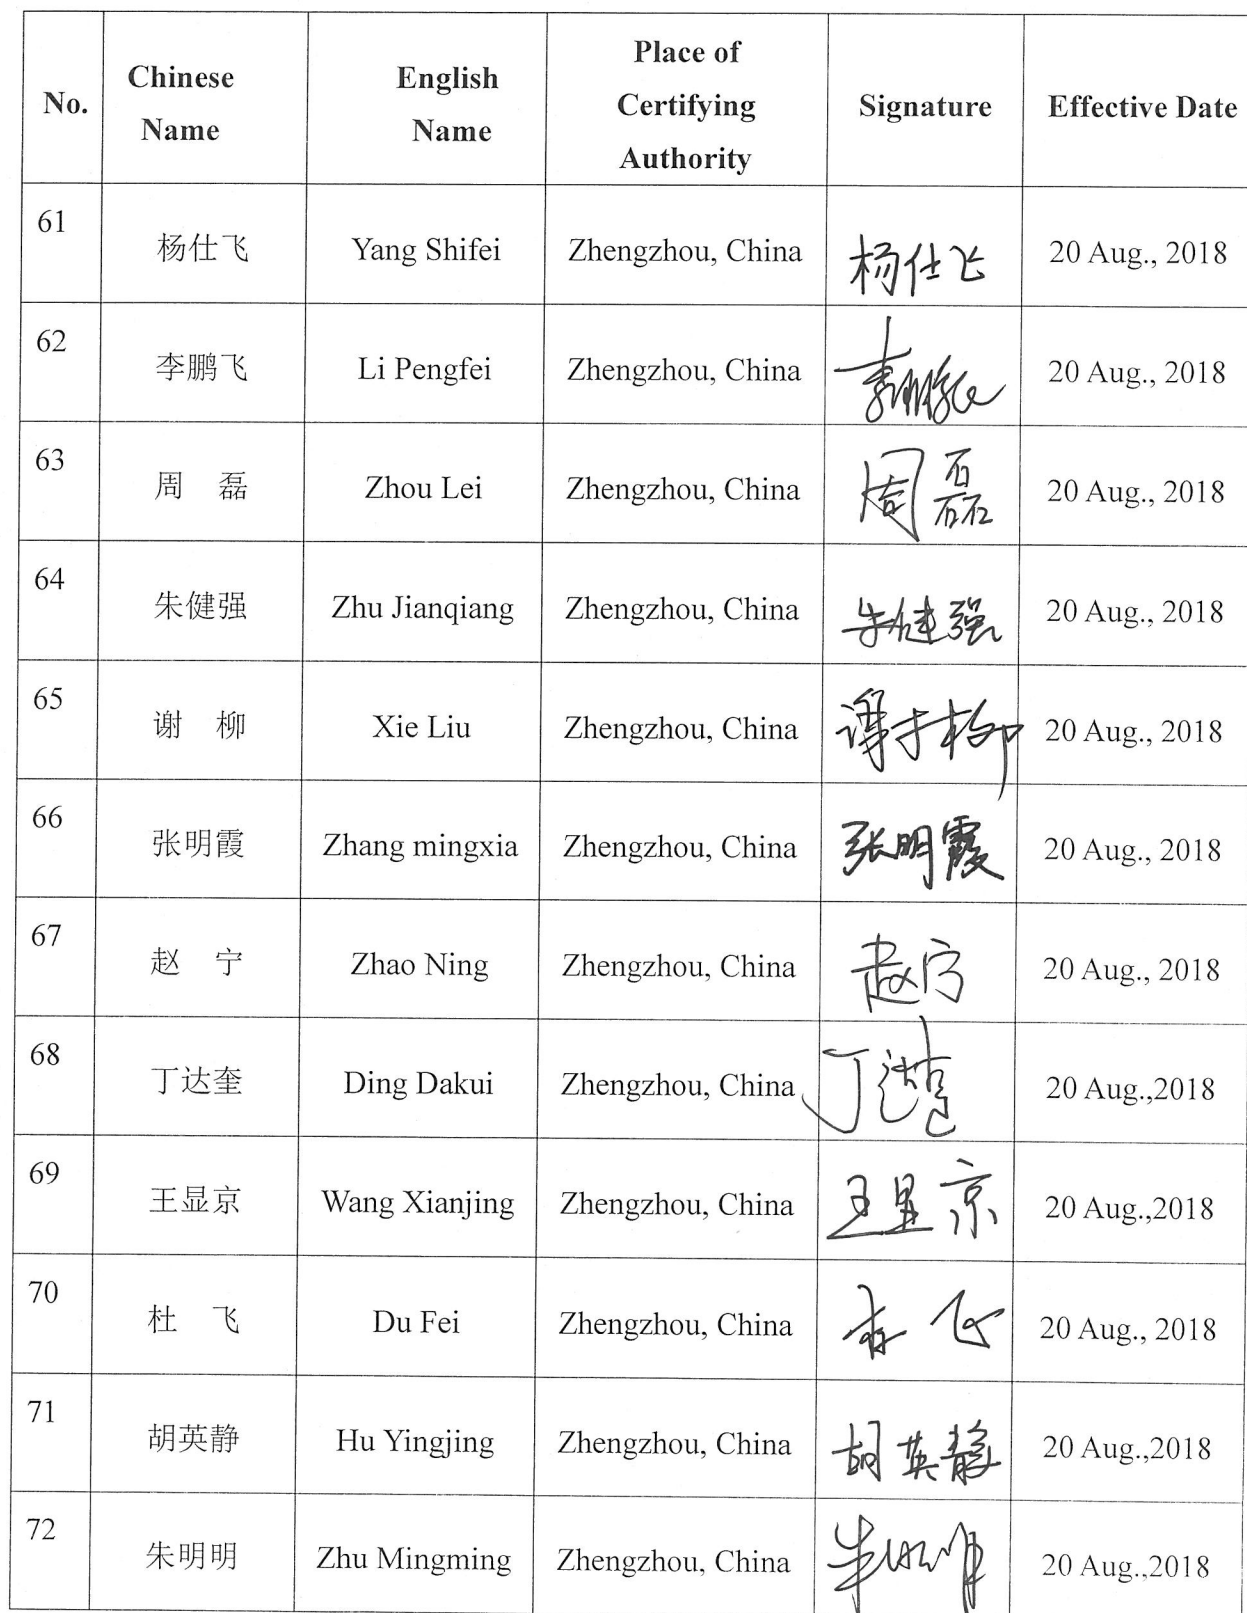 No.
Chinese
Name
English
Name
Place of
Certifying
Authority
Signature
Effective Date
61
杨仕飞
Yang Shifei
Zhengzhou, China
杨仕飞
20 Aug., 2018
62
李鹏飞
Li Pengfei
Zhengzhou, China
李鹏飞
20 Aug., 2018
63
周 磊
Zhou Lei
Zhengzhou, China
周磊
20 Aug., 2018
64
朱健强
Zhu Jianqiang
Zhengzhou, China
朱健强
20 Aug., 2018
65
谢 柳
Xie Liu
Zhengzhou, China
谢柳
20 Aug., 2018
66
张明霞
Zhang mingxia
Zhengzhou, China
张明霞
20 Aug., 2018
67
赵 宁
Zhao Ning
Zhengzhou, China
赵宁
20 Aug., 2018
68
丁达奎
Ding Dakui
Zhengzhou, China
丁达奎
20 Aug.,2018
69
王显京
Wang Xianjing
Zhengzhou, China
王显京
20 Aug.,2018
70
杜 飞
Du Fei
Zhengzhou, China
杜飞
20 Aug., 2018
71
胡英静
Hu Yingjing
Zhengzhou, China
胡英静
20 Aug.,2018
72
朱明明
Zhu Mingming
Zhengzhou, China
朱明明
20 Aug.,2018